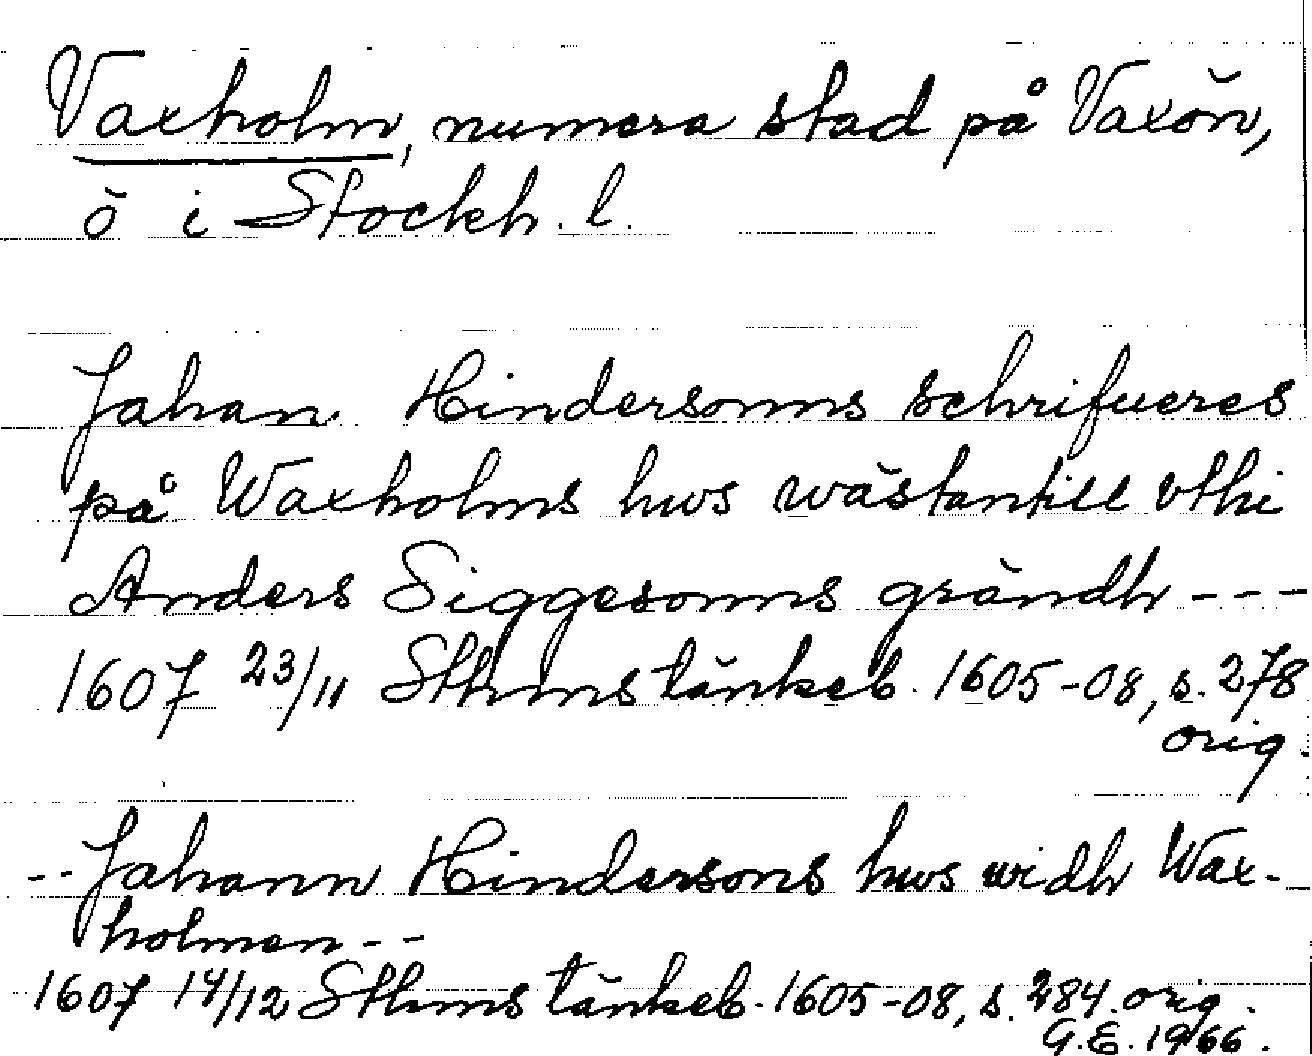 Vaxholm, numera stad på Vaxön,
ö i Stockh. l.
Jahan Hindersonns schrifueres
på Waxholms hws wästantill vthi
Anders Siggesonns grändh - - -
1607 23/11 Sthms tänkeb. 1605-08, s. 278
orig.
- - Jahann Hindersons hws widh Wax-
holmen - -
1607 14/12 Sthms tänkeb. 1605-08, s. 284. orig.
G.E. 1966.